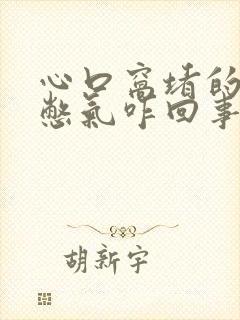 心口窝堵的
憋气咋回事
胡新宇